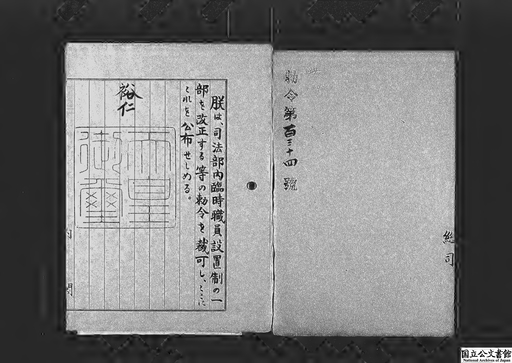 勅令第百三十四號
総司
朕は、司法部内臨時職員設置制の一
部を改正する等の勅令を裁可し、ここに
これを公布せしめる。
裕仁
天皇
御璽
国立公文書館
National Archives of Japan